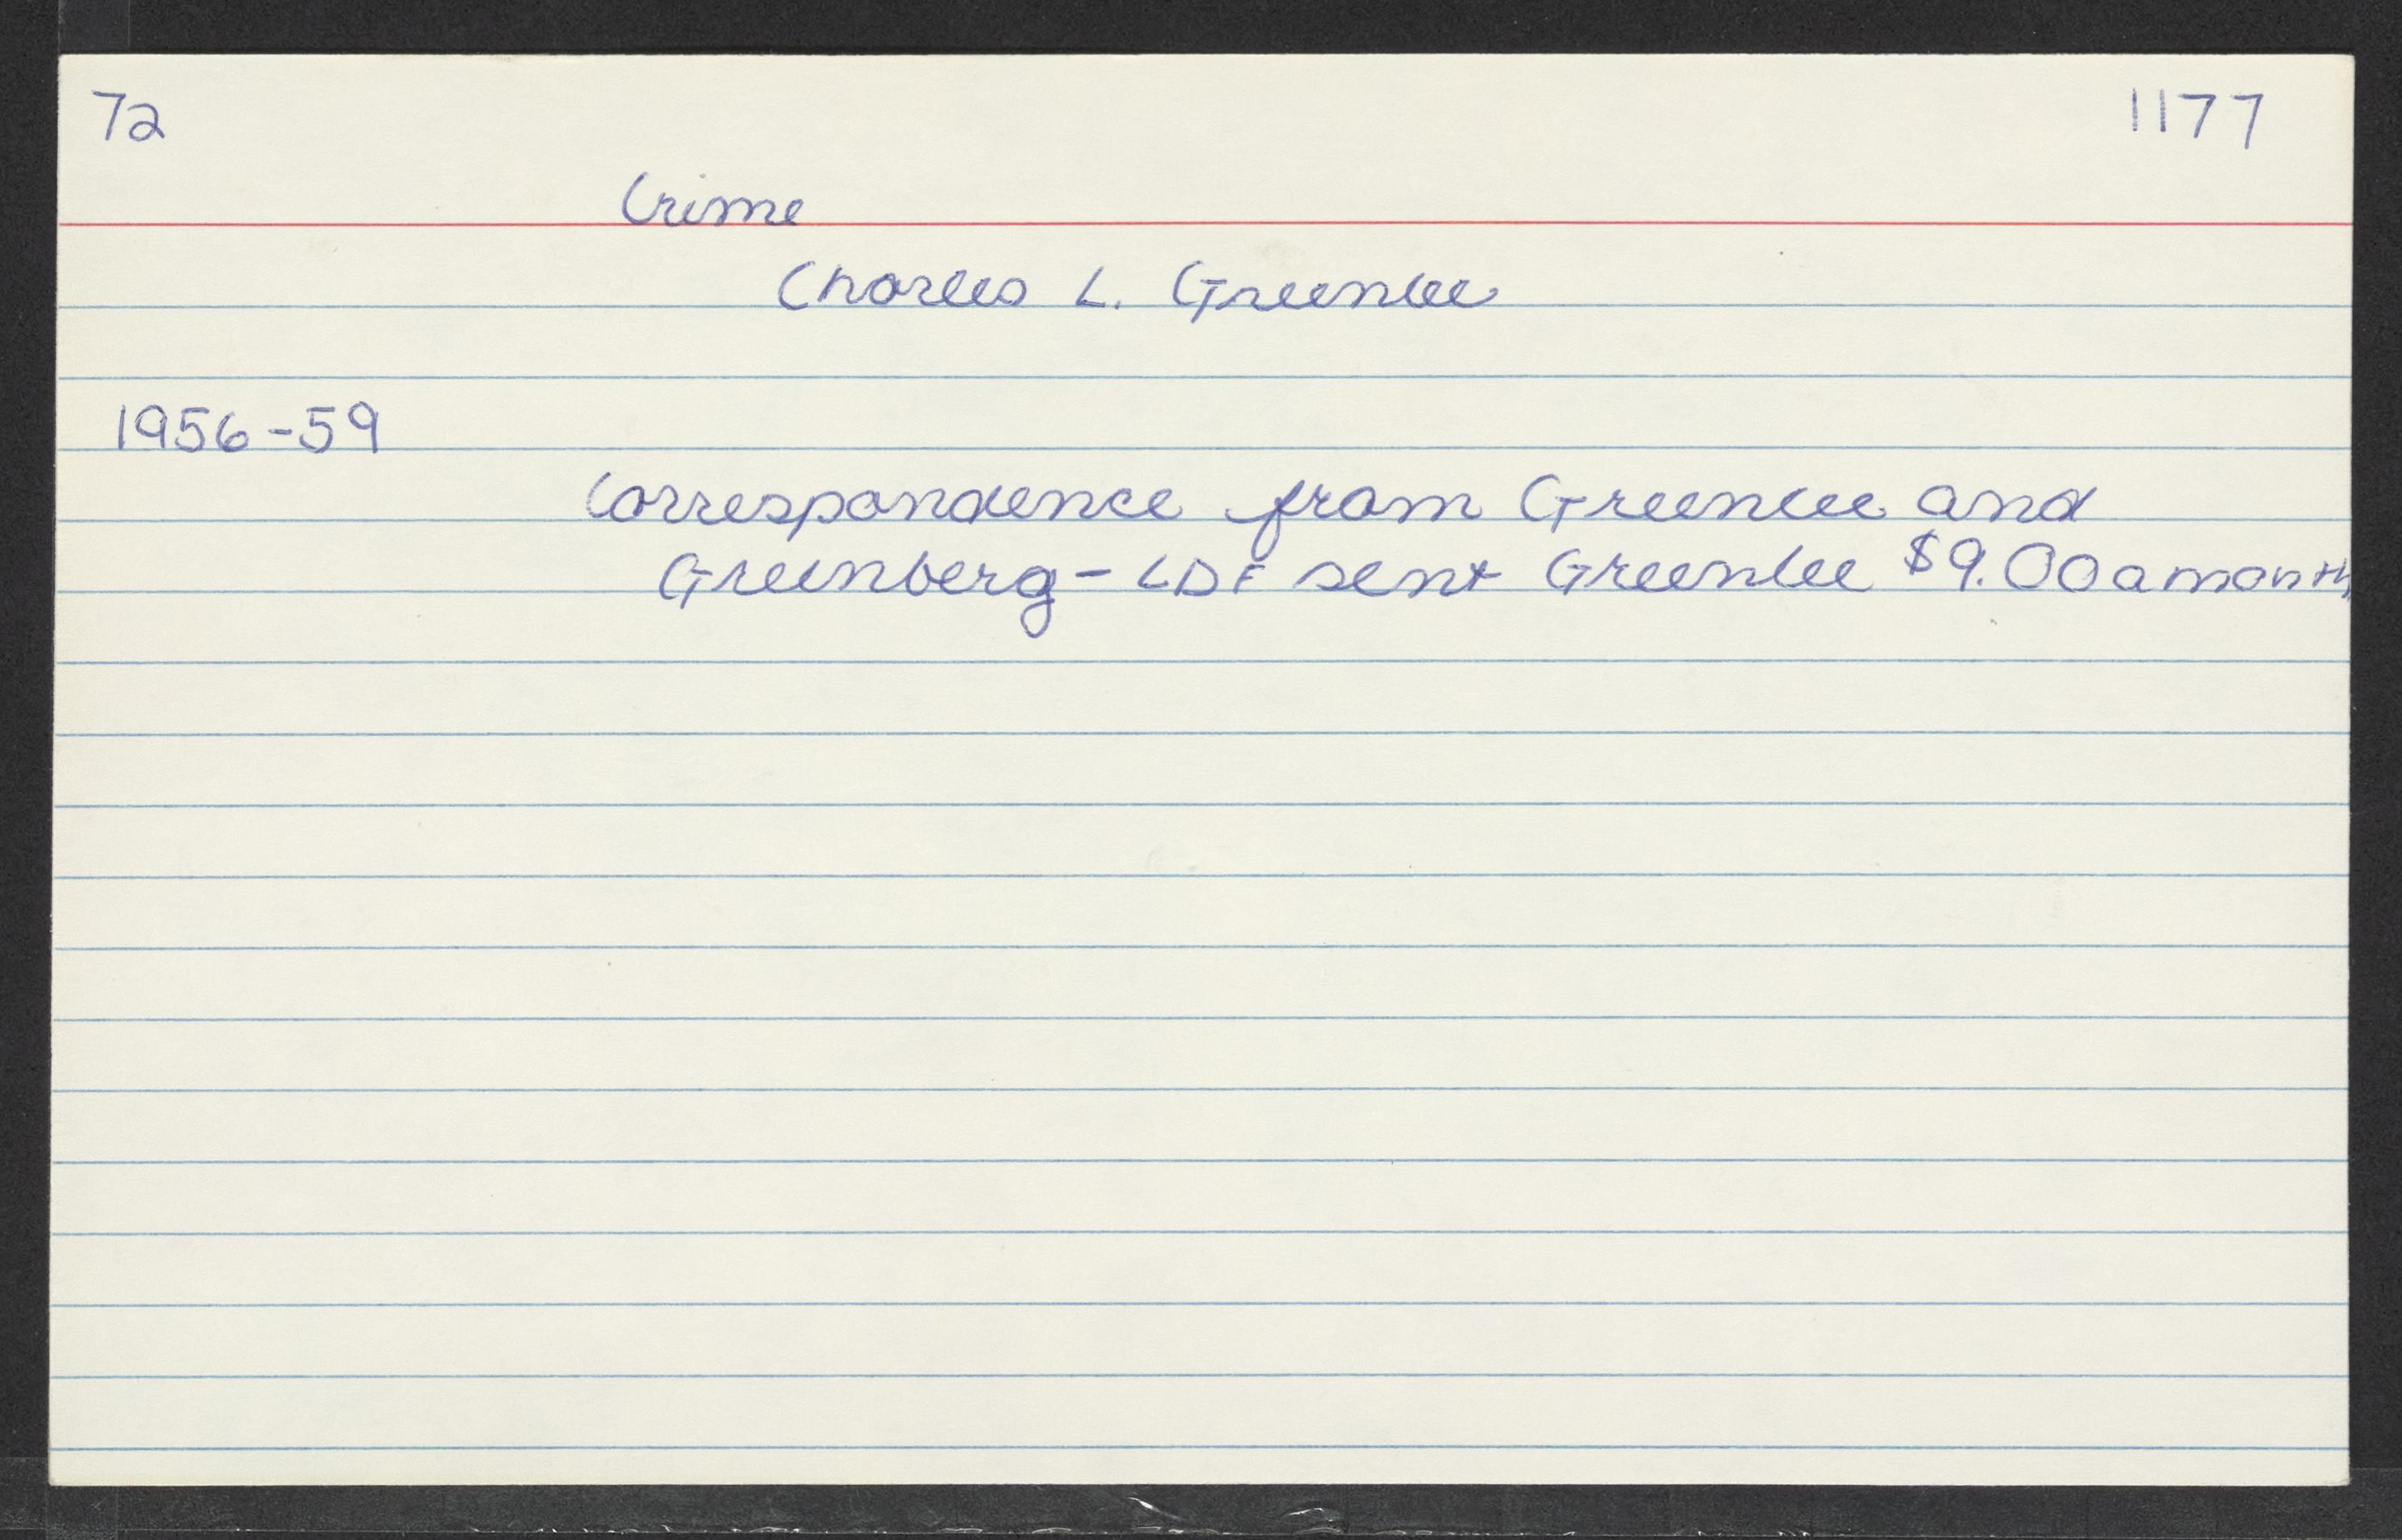 72 1177
Crime
Charles L. Greenlee
1956-59
Correspondence from Greenlee and
Greenberg - LDF sent Greenlee $9.00 a month